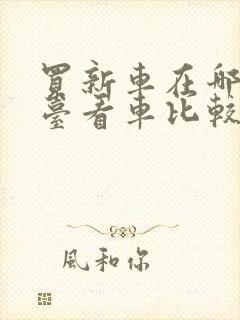 買新車在哪
臺看車比較
風和你